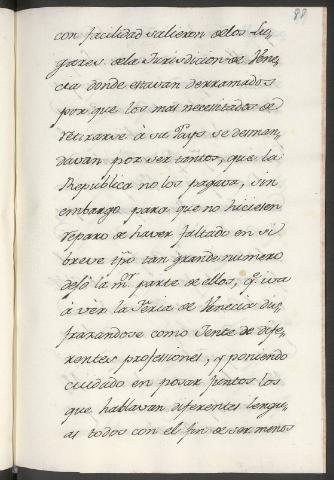 98
con facilidad salieron de los Lu,
gares de la Jurisdicion de Vene,
cia donde estavan derramados
por que los mas necesitados de
retirarse à su Pays se desman,
davan por ser tantos, que la
Republica no los pagava, sin
embargo para que no hiciesen
reparo de haver faltado en si
breve tpo tan grande numero
dejó la mr parte de ellos, q̃ iva
à vèr la Feria de Venecia dis,
frazandose como Jente de dife,
rentes professiones, y poniendo
cuidado en posar Juntos los
que hablavan diferentes lengu,
as todos con el fin de ser menos